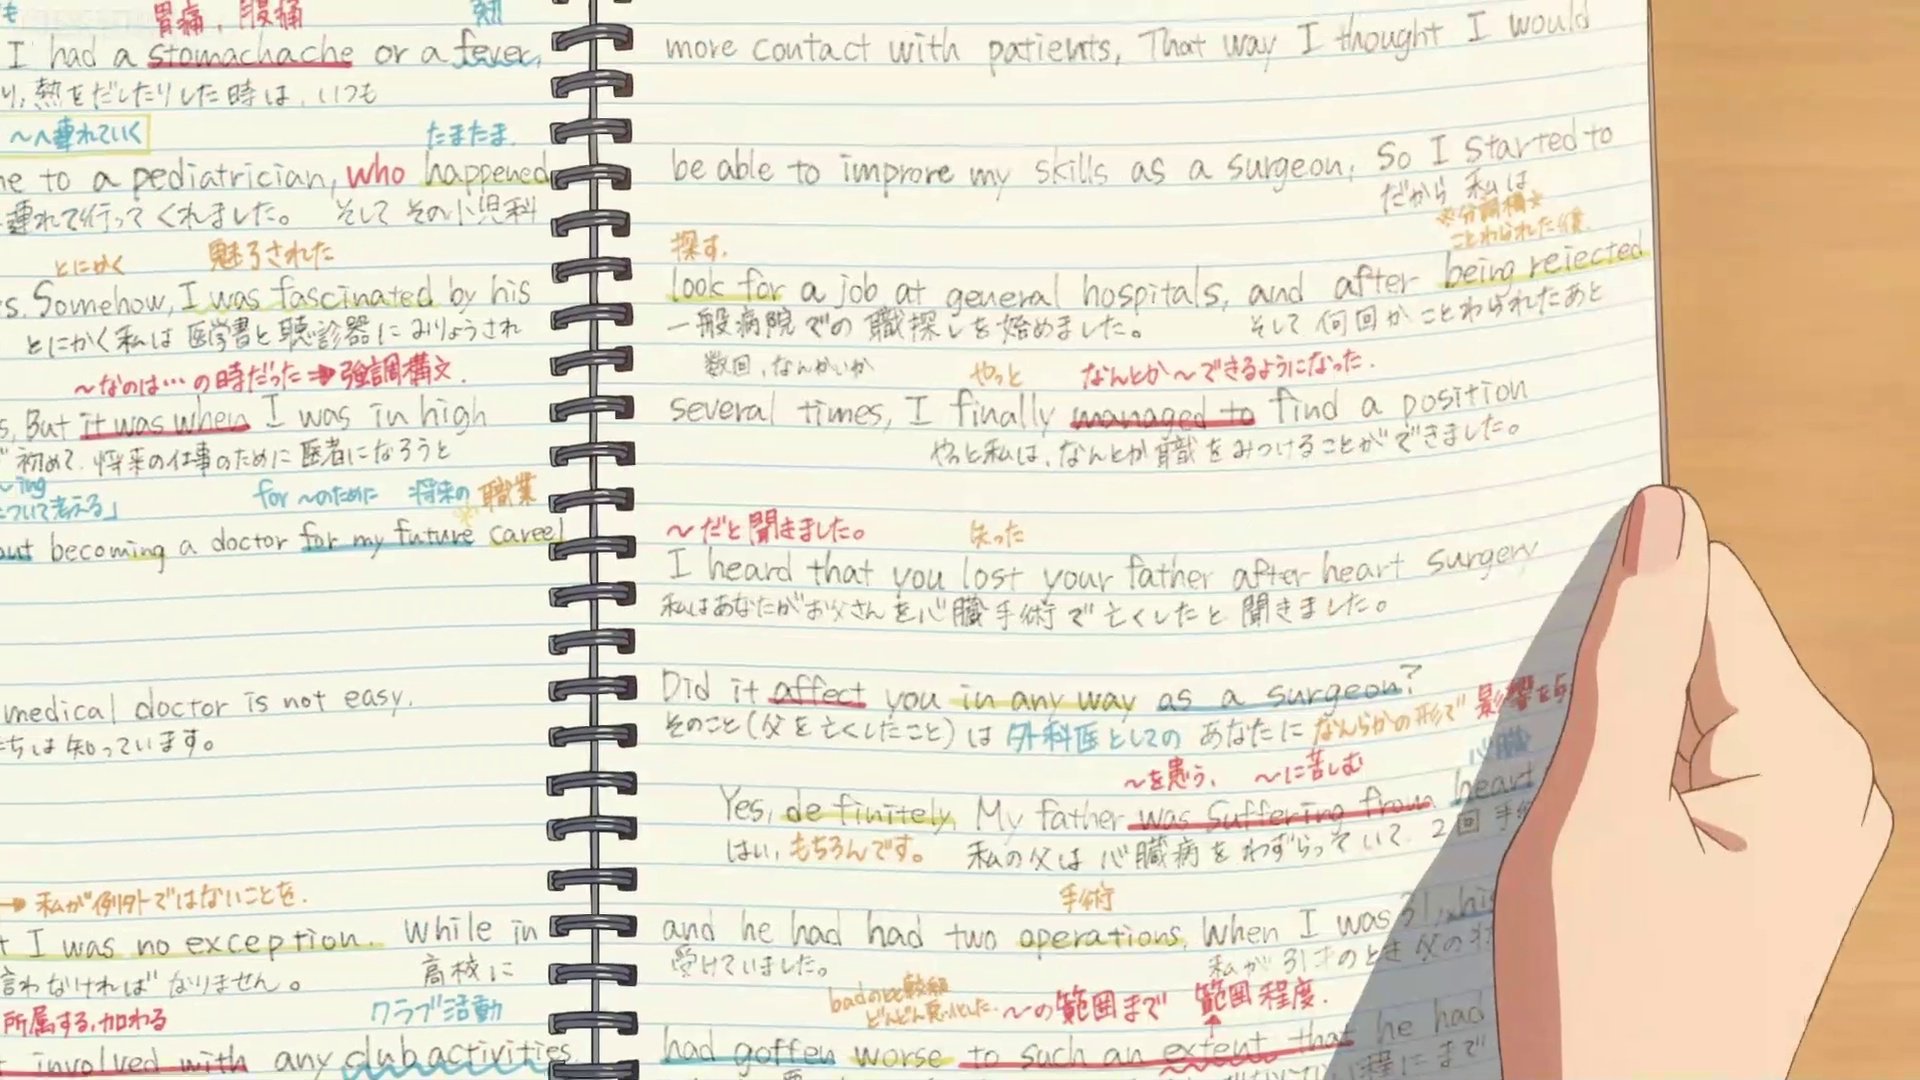 胃痛、腹痛 熱
I had a stomachache or a fever,
り、熱をだしたりした時は、いつも
～へ連れていく たまたま.
me to a pediatrician, who happened
連れて行ってくれました。 そして その小児科
とにかく 魅了された
s. Somehow, I was fascinated by his
とにかく私は 医学書と聴診器にみりょうされ
～なのは…の時だった→強調構文.
s, But it was when I was in high
初めて、将来の仕事のために医者になろうと
～ing for ～のために 将来の 職業
について考える」
out becoming a doctor for my future career
medical doctor is not easy.
ちは知っています。
→ 私が例外ではないことを.
t I was no exception. While in
言わなければなりません。 高校に
所属する,加わる クラブ活動
t involved with any club activities.
more contact with patients, That way I thought I would
be able to improre my skills as a surgeon, So I started to
だから 私は
☆分詞構文☆
探す. ことわられた後.
look for a job at general hospitals, and after being rejected
一般病院での職探しを始めました。 そして何回かことわられたあと
数回,なんかいか やっと なんとか～できるようになった.
several times, I finally managed to find a position
やっと私は、なんとか職をみつけることができました。
～だと聞きました。 失った
I heard that you lost your father after heart surgery
私はあなたがお父さんを心臓手術で亡くしたと聞きました。
Did it affect you in any way as a surgeon?
そのこと(父を亡くしたこと)は外科医としての あなたに なんらかの形で 影響を与
～を患う、 ～に苦しむ 心臓
Yes, definitely, My father was suffering from heart
はい,もちろんです。 私の父は心臓病をわずらっていて、2回手術
手術
and he had had two operations, When I was 31, his
受けていました。 私が31才のとき父の
badの比較級
どんどん悪化した. ～の範囲まで 範囲 程度.
had gotten worse to such an extent that he had
程にまで